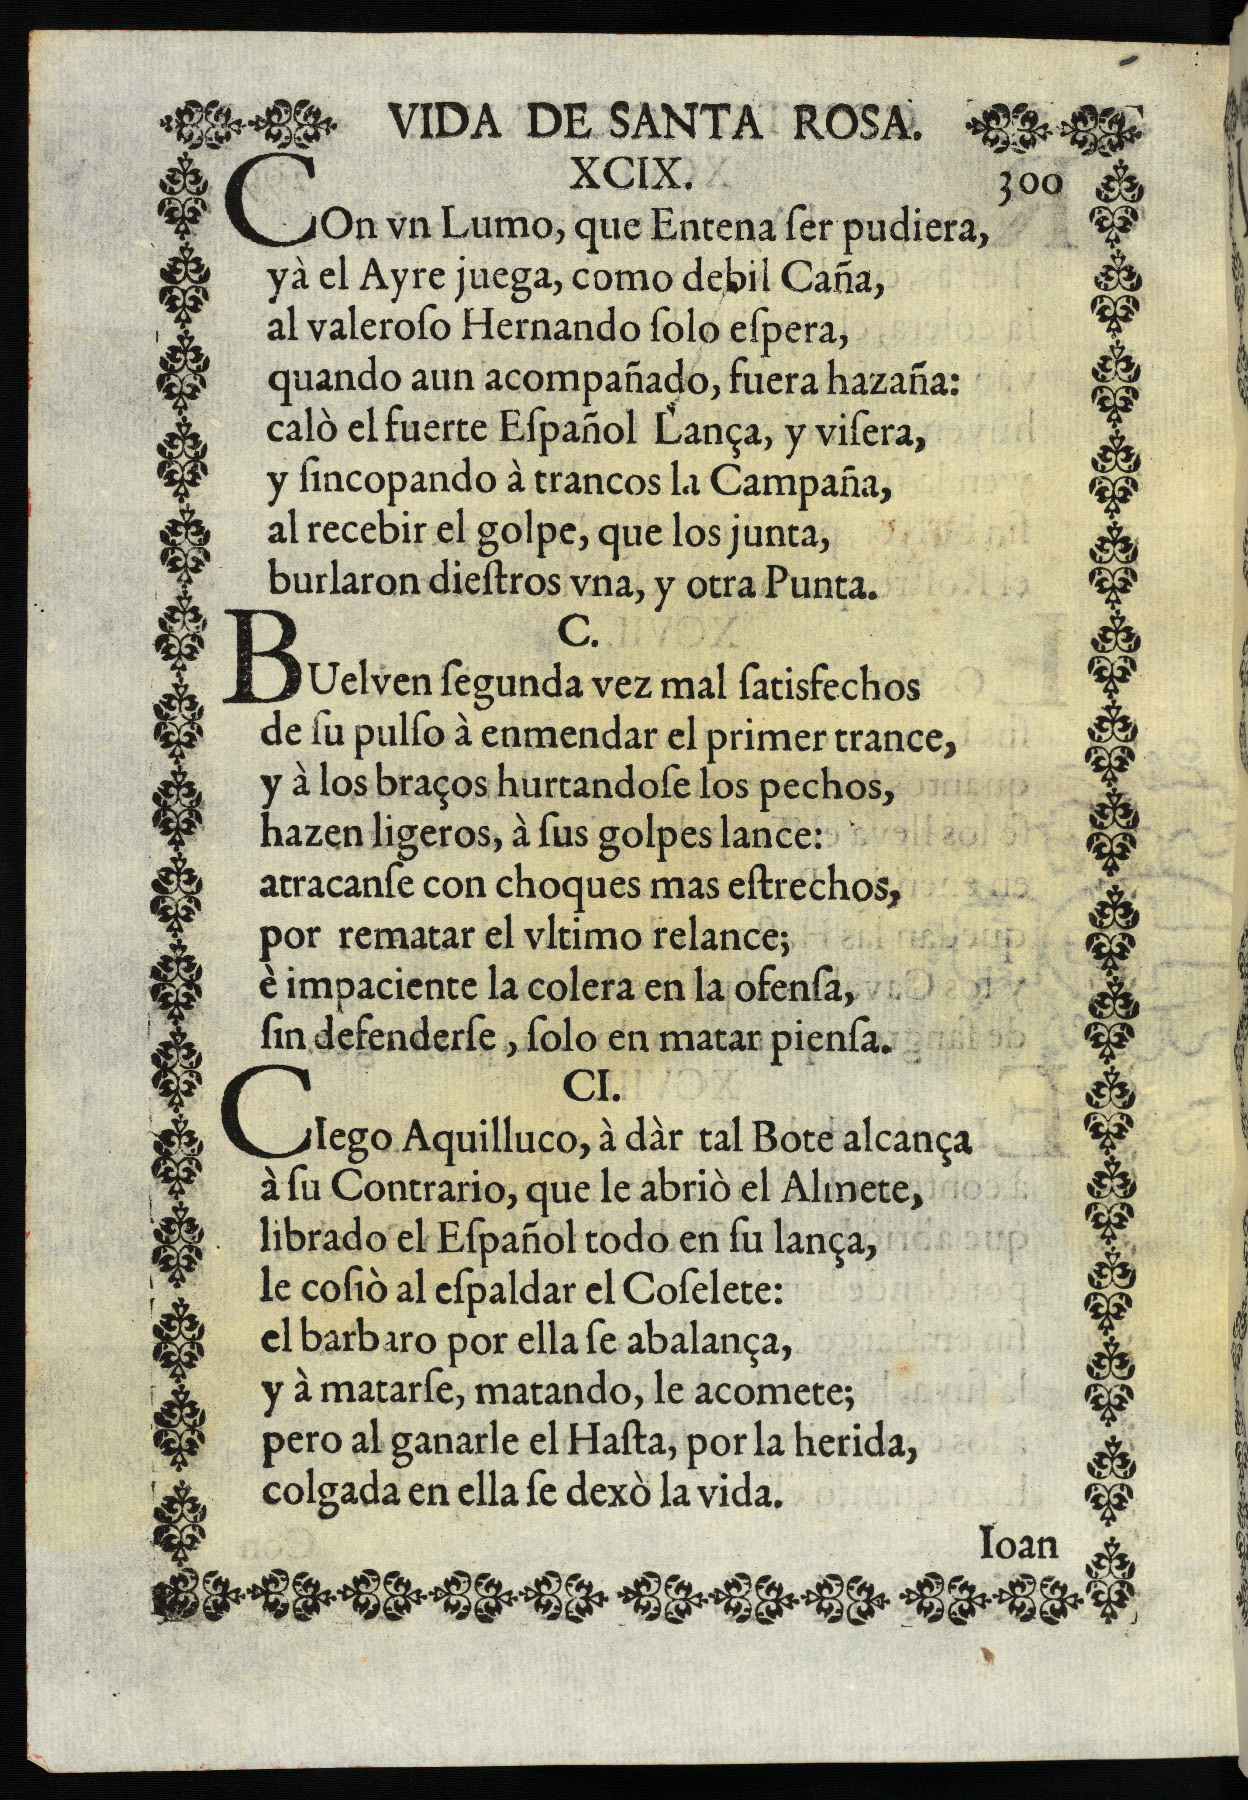 VIDA DE SANTA ROSA.
XCIX.
300
COn vn Lumo, que Entena ſer pudiera,
yà el Ayre juega, como debil Caña,
al valeroſo Hernando ſolo eſpera,
quando aun acompañado, fuera hazaña:
calò el fuerte Eſpañol Lança, y viſera,
y ſincopando à trancos la Campaña,
al recebir el golpe, que los junta,
burlaron dieſtros vna, y otra Punta.
C.
BUelven ſegunda vez mal ſatisfechos
de ſu pulſo à enmendar el primer trance,
y à los braços hurtandoſe los pechos,
hazen ligeros, à ſus golpes lance:
atracanſe con choques mas eſtrechos,
por rematar el vltimo relance;
è impaciente la colera en la ofenſa,
ſin defenderſe, ſolo en matar pienſa.
CI.
CIego Aquilluco, à dàr tal Bote alcança
à ſu Contrario, que le abriò el Almete,
librado el Eſpañol todo en ſu lança,
le coſiò al eſpaldar el Coſelete:
el barbaro por ella ſe abalança,
y à matarſe, matando, le acomete;
pero al ganarle el Haſta, por la herida,
colgada en ella ſe dexò la vida.
Ioan